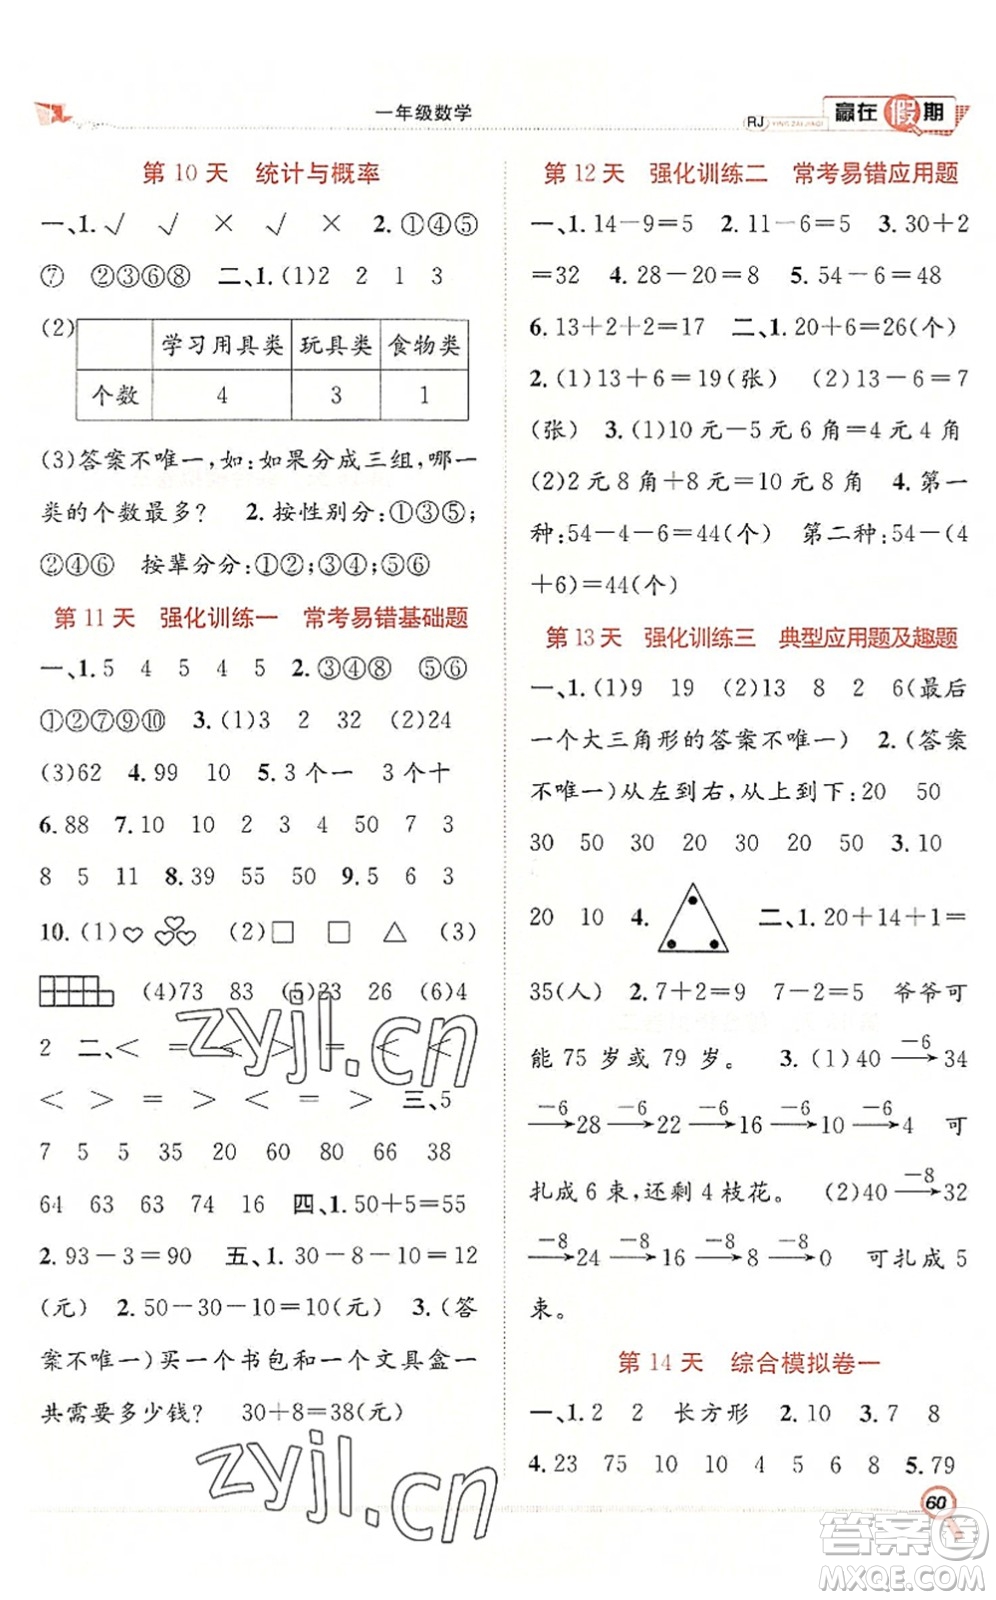 一年级数学
RJ
赢在假期
第10天 统计与概率
一、1.√ √ × × √ 2.①④⑤
⑦ ②③⑥⑧ 二、1.(1)2 2 1 3
(2)
学习用具类 玩具类 食物类
个数 4 3 1
(3)答案不唯一,如:如果分成三组,哪一
类的个数最多? 2.按性别分:①③⑤;
②④⑥ 按辈分分:①②;③④;⑤⑥
第11天 强化训练一 常考易错基础题
一、1.5 4 5 4 5 2.③④⑧ ⑤⑥
①②⑦⑨⑩ 3.(1)3 2 32 (2)24
(3)62 4.99 10 5.3个一 3个十
6.88 7.10 10 2 3 4 50 7 3
8 5 11 8.39 55 50 9.5 6
10.(1)♡ (2)□ □ △ (3)
(4)73 83 (5)23 26 (6)4
2 二、< = < = < =
< > = > < = > 三、5
7 5 5 35 20 60 80 66 38
64 63 63 74 16 四、1.50+5=55
2.93-3=90 五、1.30-8-10=12
(元) 2.50-30-10=10(元) 3.(答
案不唯一)买一个书包和一个文具盒一
共需要多少钱? 30+8=38(元)
第12天 强化训练二 常考易错应用题
一、1.14-9=5 2.11-6=5 3.30+2
=32 4.28-20=8 5.54-6=48
6.13+2+2=17 二、1.20+6=26(个)
2.(1)13+6=19(张) (2)13-6=7
(张) 3.(1)10元-5元6角=4元4角
(2)2元8角+8元=10元8角 4.第一
种:54-4-6=44(个) 第二种:54-(4
+6)=44(个)
第13天 强化训练三 典型应用题及趣题
一、1.(1)9 19 (2)13 8 2 6(最后
一个大三角形的答案不唯一) 2.(答案
不唯一)从左到右,从上到下:20 50
30 50 30 20 20 50 3.10
20 10 4. 二、1.20+14+1=
35(人) 2.7+2=9 7-2=5 爷爷可
能75岁或79岁。 3.(1)40 -6→ 34
-6→ 28 -6→ 22 -6→ 16 -6→ 10 -6→ 4 可
扎成6束,还剩4枝花。 (2)40 -8→ 32
-8→ 24 -8→ 16 -8→ 8 -8→ 0 可扎成5
束。
第14天 综合模拟卷一
一、1.2 2 长方形 2.10 3.7 8
4.23 75 10 10 4 5 6 8 5.79
60
zyjl.cn
zyjl.cn
答案圈
MXQE.COM